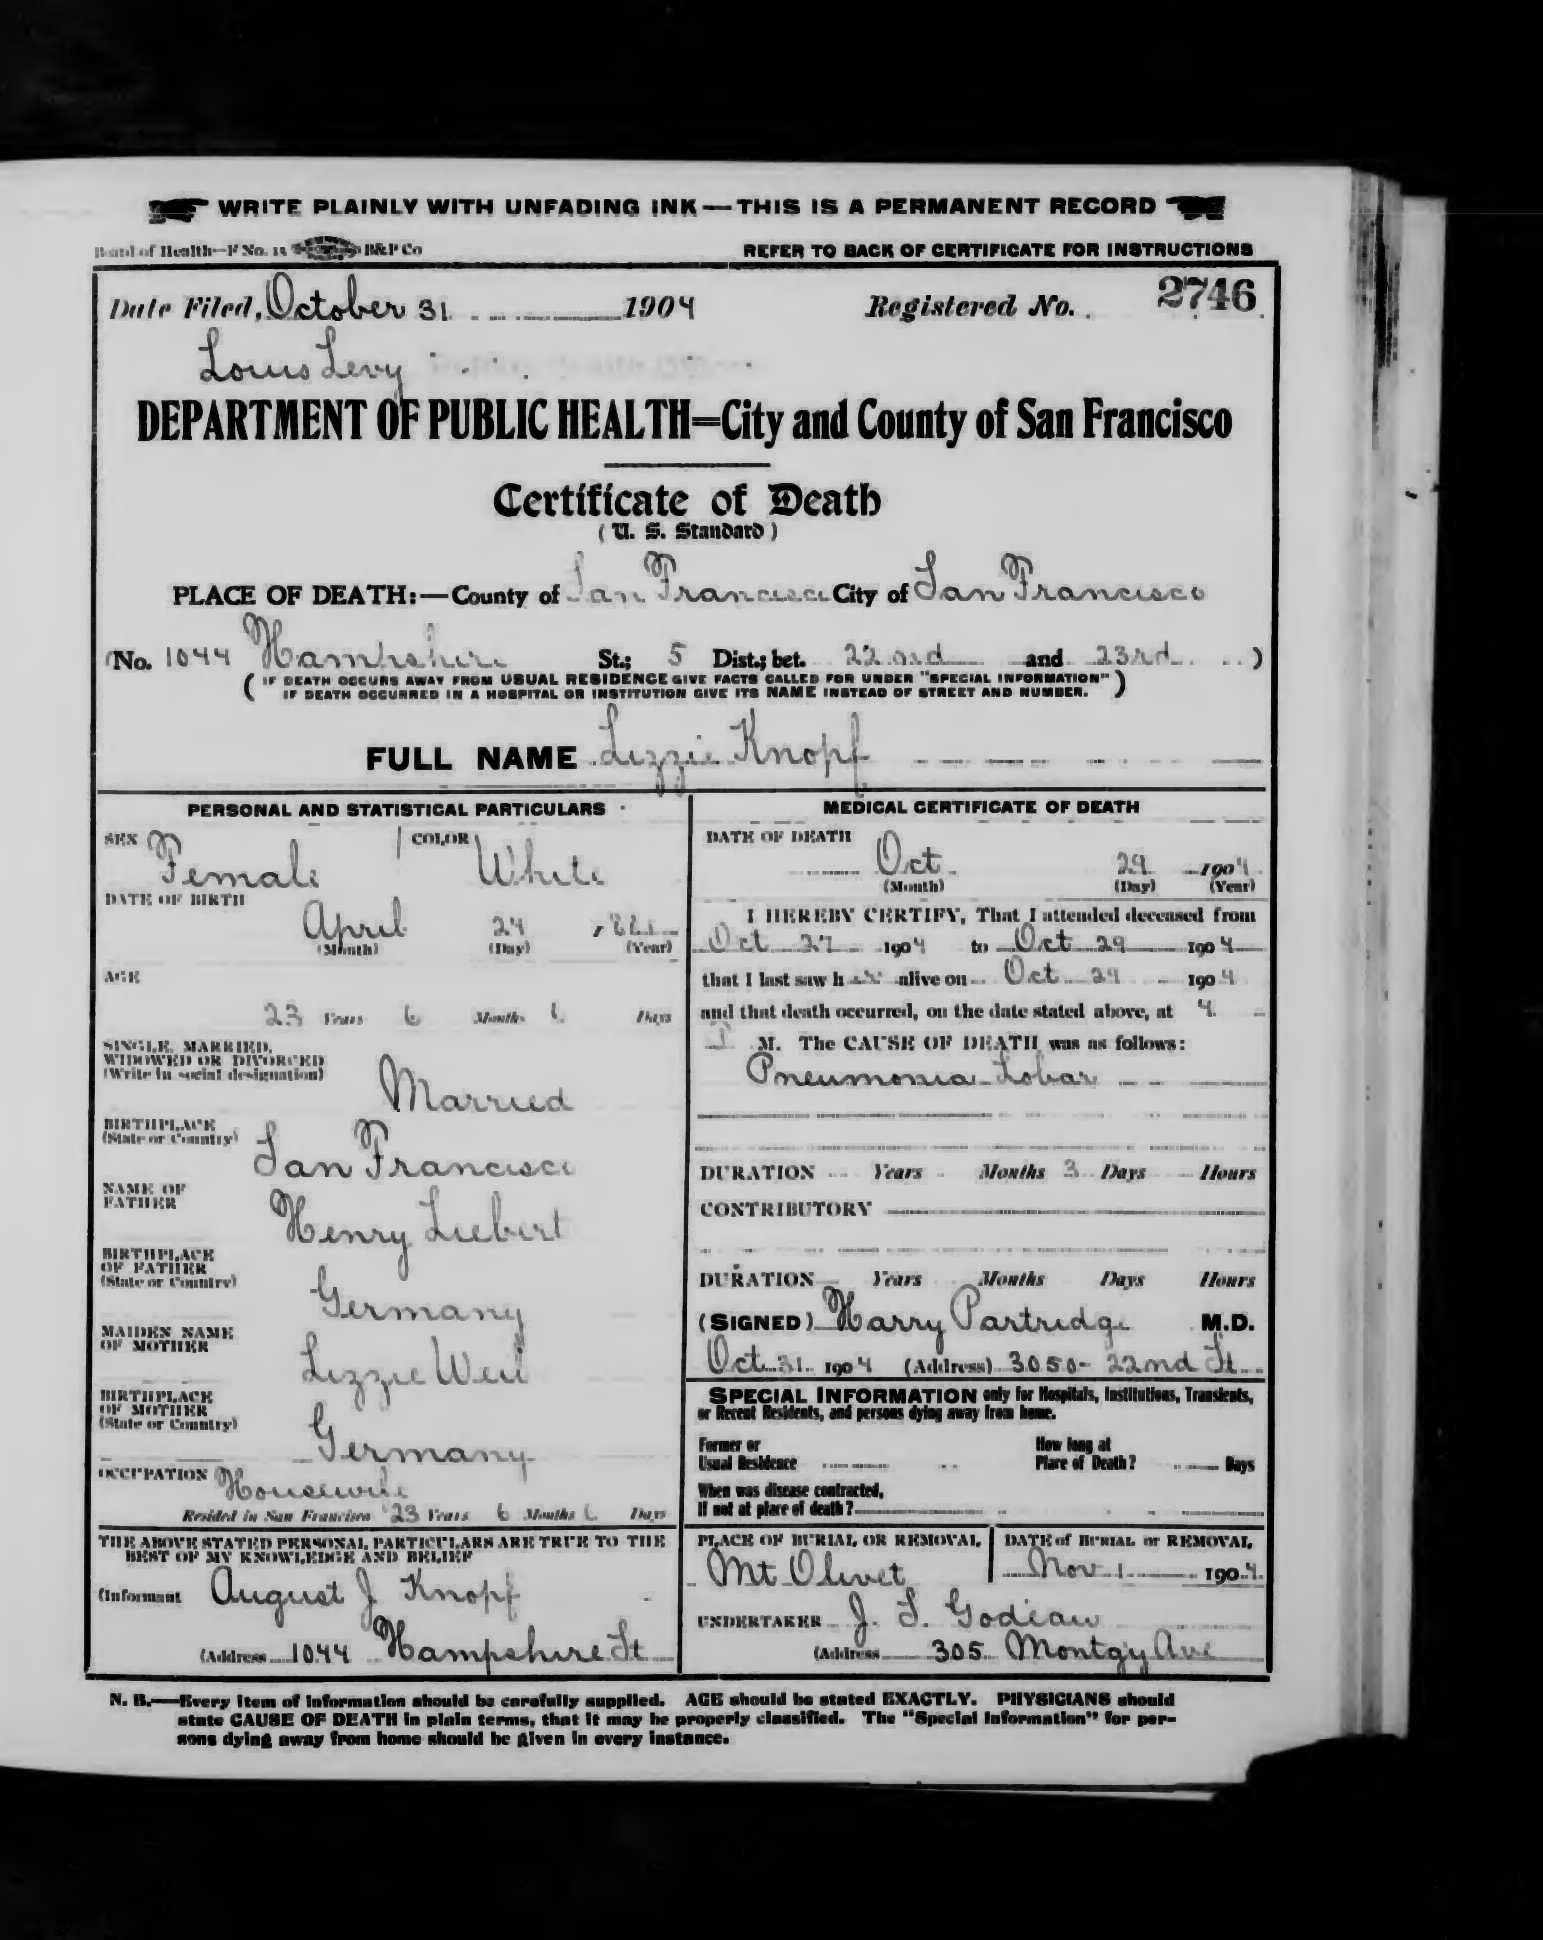 WRITE PLAINLY WITH UNFADING INK—THIS IS A PERMANENT RECORD
Board of Health—F No. 15 B&P Co REFER TO BACK OF CERTIFICATE FOR INSTRUCTIONS
Date Filed, October 31 1904 Registered No. 2746
Louis Levy
DEPARTMENT OF PUBLIC HEALTH=City and County of San Francisco
Certificate of Death
(U. S. Standard)
PLACE OF DEATH:—County of San Francisco City of San Francisco
(No. 1044 Hampshire St.; 5 Dist.; bet. 22nd and 23rd )
(IF DEATH OCCURS AWAY FROM USUAL RESIDENCE GIVE FACTS CALLED FOR UNDER "SPECIAL INFORMATION"
IF DEATH OCCURRED IN A HOSPITAL OR INSTITUTION GIVE ITS NAME INSTEAD OF STREET AND NUMBER.)
FULL NAME Lizzie Knopf
PERSONAL AND STATISTICAL PARTICULARS
SEX Female COLOR White
DATE OF BIRTH
April 24
(Month) (Day) (Year)
AGE
23 Years 6 Months 6 Days
SINGLE, MARRIED,
WIDOWED OR DIVORCED
(Write in social designation)
Married
BIRTHPLACE
(State or Country)
San Francisco
NAME OF
FATHER
Henry Liebert
BIRTHPLACE
OF FATHER
(State or Country)
Germany
MAIDEN NAME
OF MOTHER
Lizzie Weil
BIRTHPLACE
OF MOTHER
(State or Country)
Germany
OCCUPATION Housewife
Resided in San Francisco 23 Years 6 Months 6 Days
THE ABOVE STATED PERSONAL PARTICULARS ARE TRUE TO THE
BEST OF MY KNOWLEDGE AND BELIEF
(Informant August J Knopf
(Address 1044 Hampshire St
MEDICAL CERTIFICATE OF DEATH
DATE OF DEATH
Oct 29 1904
(Month) (Day) (Year)
I HEREBY CERTIFY, That I attended deceased from
Oct 27 1904 to Oct 29 1904
that I last saw her alive on Oct 29 1904
and that death occurred, on the date stated above, at 4
M. The CAUSE OF DEATH was as follows:
Pneumonia Lobar
DURATION Years Months 3 Days Hours
CONTRIBUTORY
DURATION Years Months Days Hours
(SIGNED) Harry Partridge M.D.
Oct 31 1904 (Address) 3050-22nd St
SPECIAL INFORMATION only for Hospitals, Institutions, Transients,
or Recent Residents, and persons dying away from home.
Former or
Usual Residence
How long at
Place of Death? Days
When was disease contracted,
If not at place of death?
PLACE OF BURIAL OR REMOVAL
Mt Olivet
DATE of BURIAL or REMOVAL
Nov 1 1904
UNDERTAKER J. S. Godeau
(Address 305 Montgy Ave
N. B.—Every item of information should be carefully supplied. AGE should be stated EXACTLY. PHYSICIANS should
state CAUSE OF DEATH in plain terms, that it may be properly classified. The "Special Information" for per-
sons dying away from home should be given in every instance.